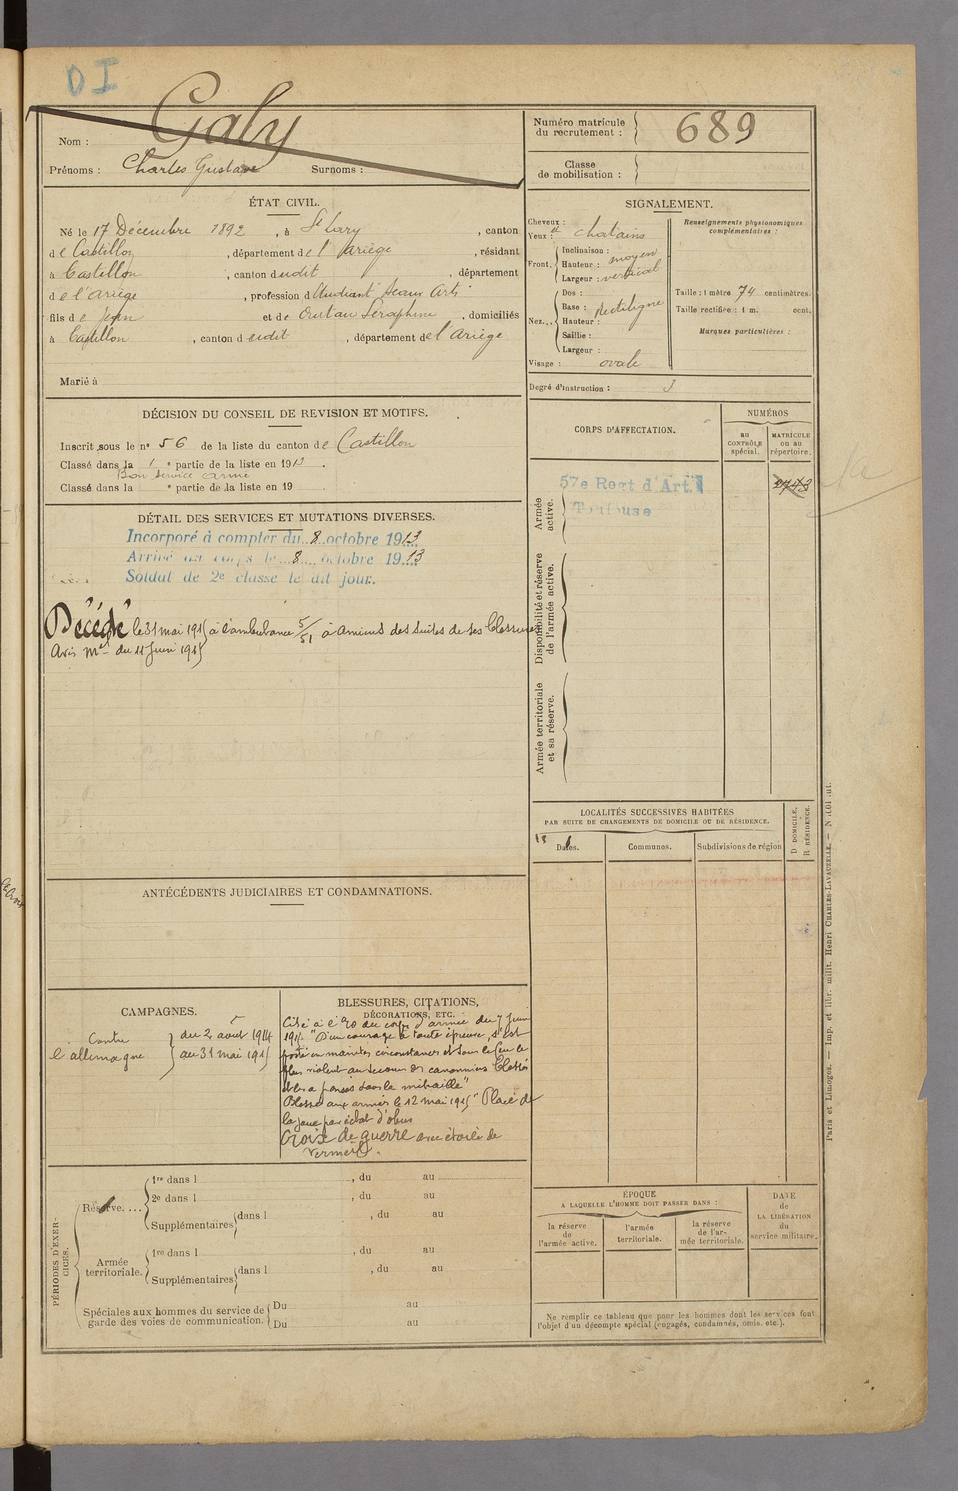 DI
Nom : Galy
Prénoms : Charles Gustave Surnoms :
Numéro matricule
du recrutement : 689
Classe
de mobilisation :
ÉTAT CIVIL.
Né le 17 Décembre 1892, à St Lary, canton
de Castillon, département de l'Ariège, résidant
à Castillon, canton dudit, département
de l'ariège, profession d'Etudiant Beaux Arts
fils de Jean et de Seraphine, domiciliés
à Castillon, canton dudit, département de l'Ariège
Marié à
SIGNALEMENT.
Cheveux :
Yeux : et chatains
Front. Inclinaison :
Hauteur : moyen
Largeur : vertical
Nez. Dos :
Base : Rectiligne
Hauteur :
Saillie :
Largeur :
Visage : ovale
Renseignements physionomiques
complémentaires :
Taille : 1 mètre 74 centimètres.
Taille rectifiée : 1 m. cent.
Marques particulières :
Degré d'instruction : 3
DÉCISION DU CONSEIL DE REVISION ET MOTIFS.
Inscrit sous le n° 56 de la liste du canton de Castillon
Classé dans la 1e partie de la liste en 1913.
Bon service armé
Classé dans la e partie de la liste en 19 .
CORPS D'AFFECTATION.
NUMÉROS
au
CONTRÔLE
spécial.
MATRICULE
ou au
répertoire.
Armée
active.
57e Regt d'Art.
Toulouse
2743
Disponibilité et réserve
de l'armée active.
Armée territoriale
et sa réserve.
DÉTAIL DES SERVICES ET MUTATIONS DIVERSES.
Incorporé à compter du 8 octobre 1913
Arrivé au corps le 8 octobre 1913
Soldat de 2e classe le dit jour.
Décédé le 31 mai 1915 à l'ambulance 5/51 à Amiens des suites de ses blessures
Avis Mel du 11 Juin 1915
LOCALITÉS SUCCESSIVES HABITÉES
PAR SUITE DE CHANGEMENTS DE DOMICILE OU DE RÉSIDENCE.
Dates.
Communes.
Subdivisions de région
D DOMICILE.
R RÉSIDENCE.
ANTÉCÉDENTS JUDICIAIRES ET CONDAMNATIONS.
CAMPAGNES.
Contre
l'allemagne
du 2 aout 1914
au 31 mai 1915
BLESSURES, CITATIONS,
DÉCORATIONS, ETC.
Cité à l'ordre du corps d'armée du 7 Juin
1915 "D'un courage à toute épreuve, s'est
porté en maintes circonstances et sous le feu le
plus violent au secours des canonniers blessés
et les a pansés sous la mitraille"
Blessé aux armées le 12 mai 1915 "Plaie de
la joue par éclat d'obus
Croix de guerre avec étoile de
Vermeil.
PÉRIODES D'EXERCICES.
Réserve.... 1re dans l , du au
2e dans l , du au
Supplémentaires dans l , du au
Armée
territoriale. 1re dans l , du au
Supplémentaires dans l , du au
Spéciales aux hommes du service de
garde des voies de communication. Du au
Du au
ÉPOQUE
A LAQUELLE L'HOMME DOIT PASSER DANS :
la réserve
de
l'armée active.
l'armée
territoriale.
la réserve
de l'ar-
mée territoriale.
DATE
de
LA LIBÉRATION
du
service militaire.
Ne remplir ce tableau que pour les hommes dont les services font
l'objet d'un décompte spécial (engagés, condamnés, omis, etc.).
Paris et Limoges. — Imp. et libr. milit. Henri CHARLES-LAVAUZELLE. —